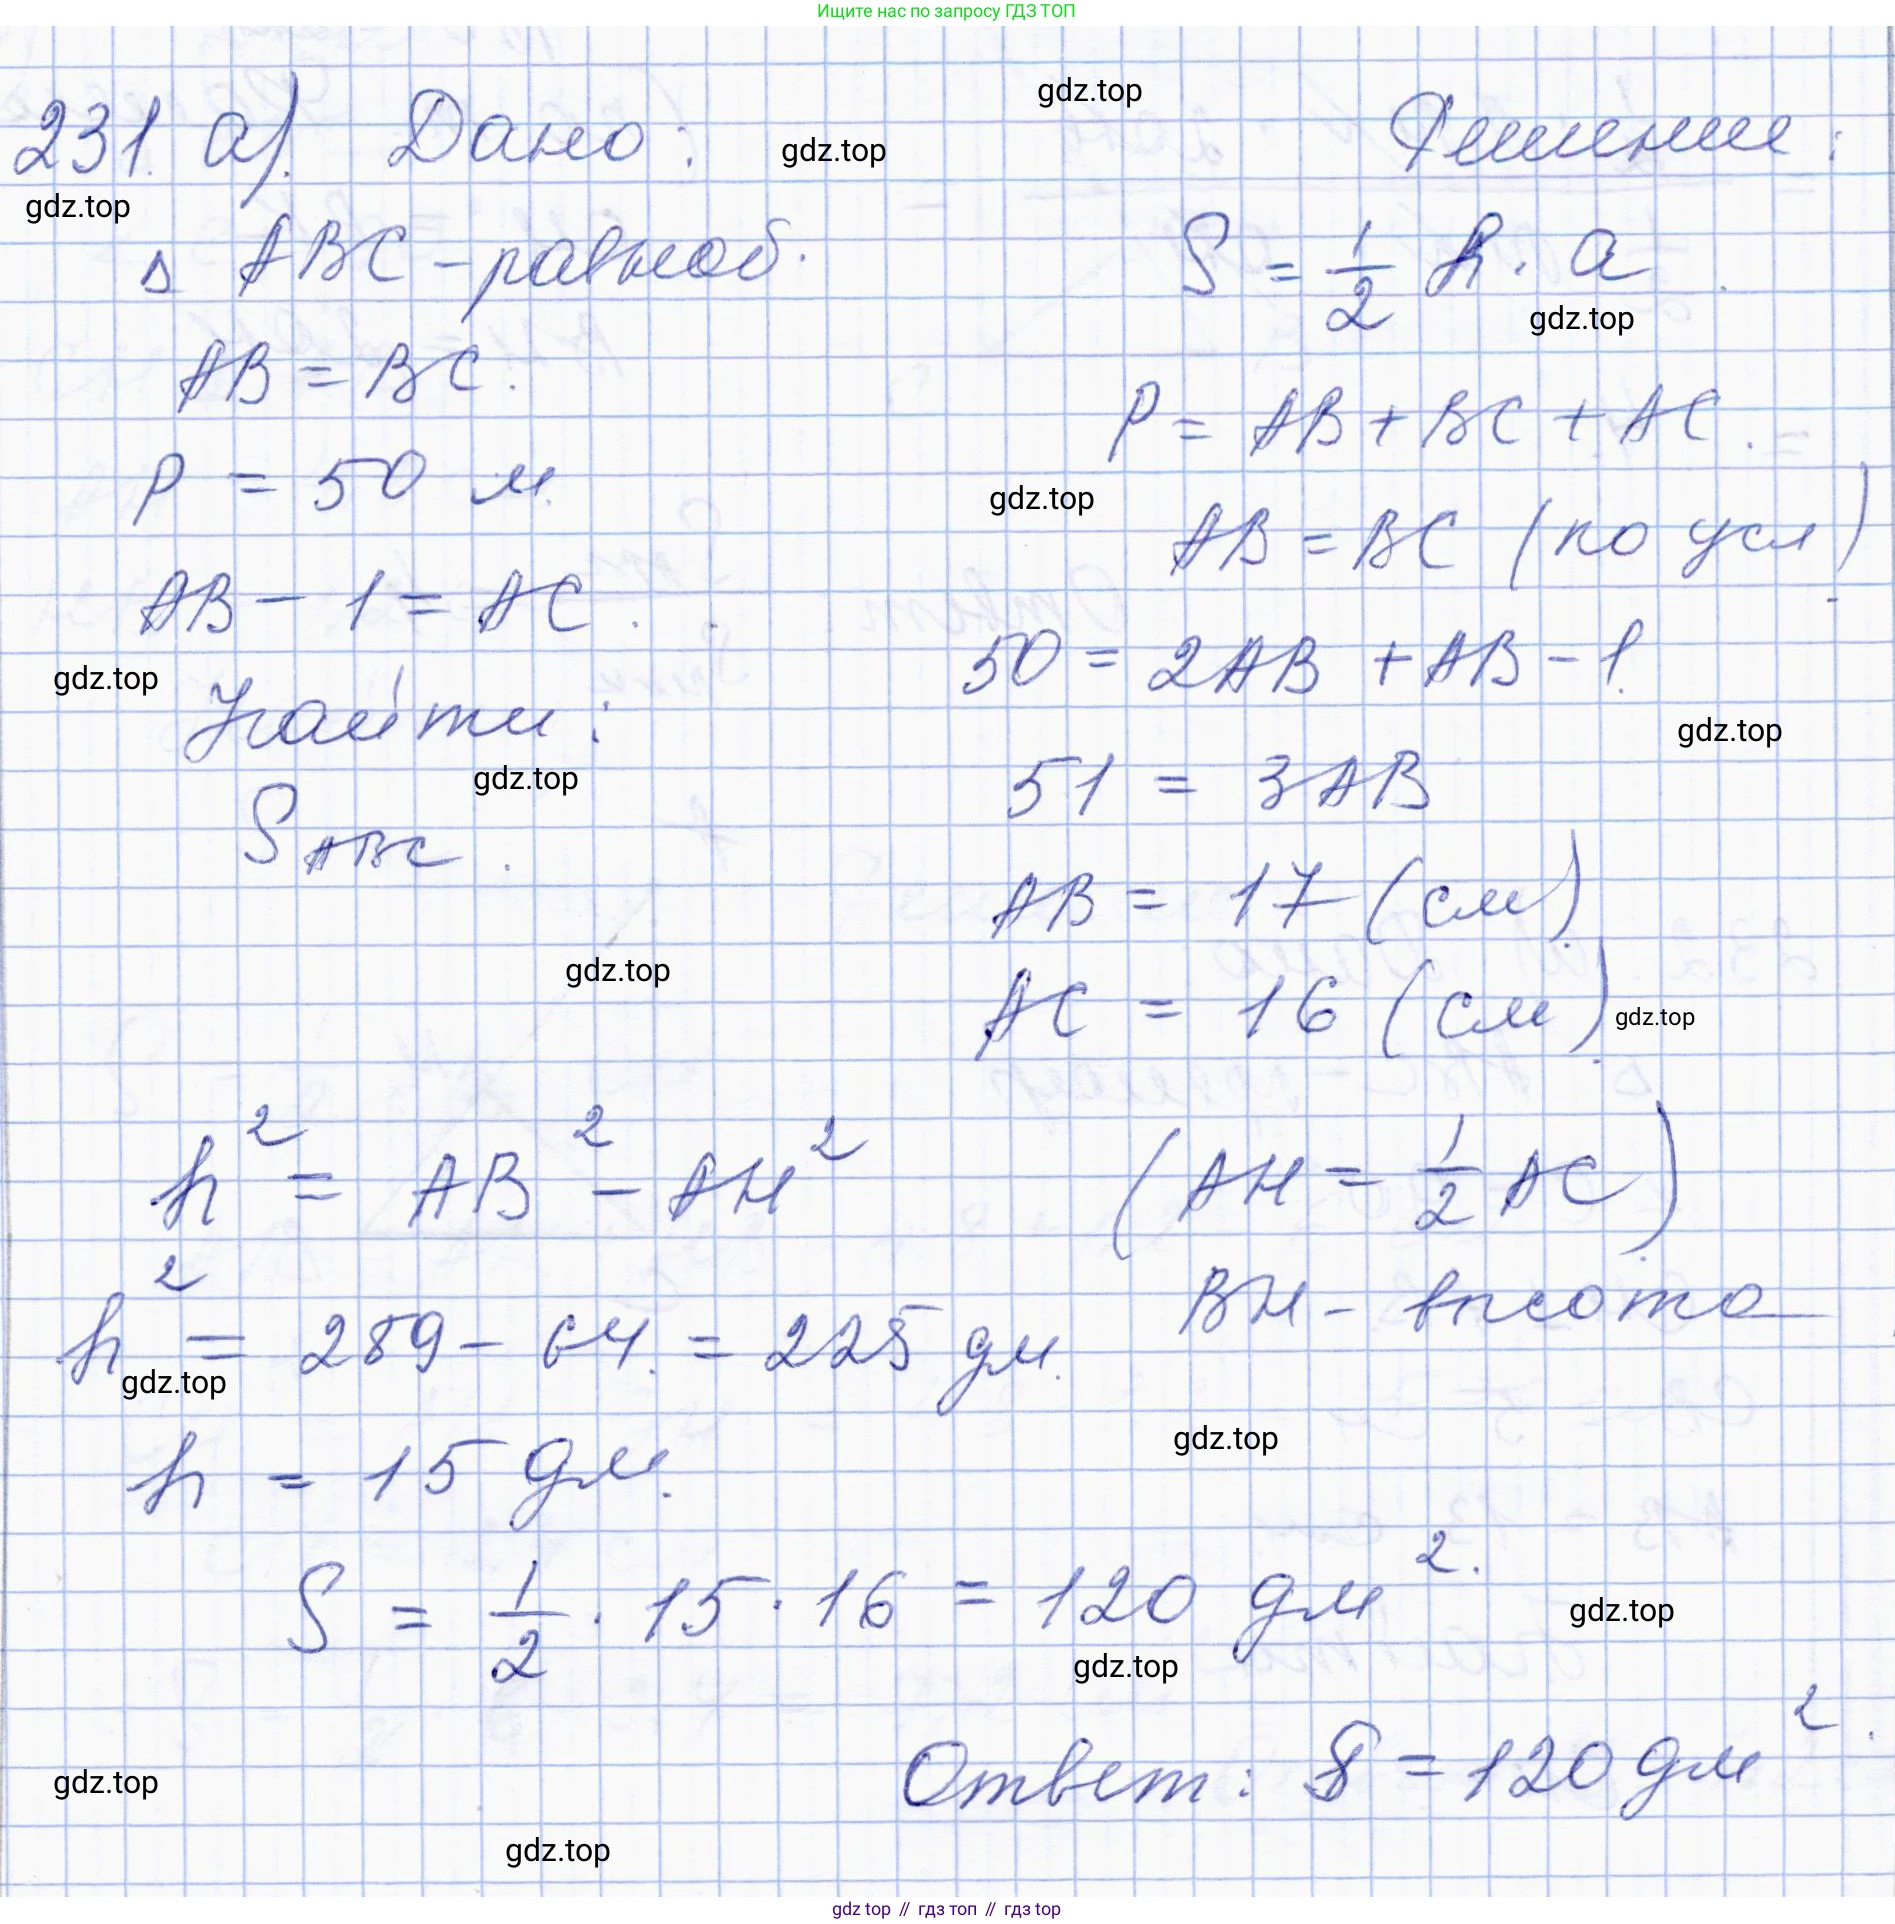 Ищите нас по запросу ГДЗ ТОП
231. а). Дано:
gdz.top
gdz.top
gdz.top
△ ABC - равноб.
AB = BC.
P = 50 м.
AB - 1 = AC.
gdz.top
Найти:
gdz.top
S ABC.
gdz.top
Решение:
S = 1/2 h · a.
gdz.top
P = AB + BC + AC.
gdz.top
AB = BC (по усл)
50 = 2AB + AB - 1.
gdz.top
51 = 3AB
AB = 17 (см).
AC = 16 (см).
gdz.top
h² = AB² - AH² (AH = 1/2 AC)
h² = 289 - 64. = 225 дм. BH - высота
gdz.top
gdz.top
h = 15 дм.
S = 1/2 · 15 · 16 = 120 дм².
gdz.top
gdz.top
Ответ: S = 120 дм².
gdz.top
gdz.top
gdz top // гдз топ // гдз top